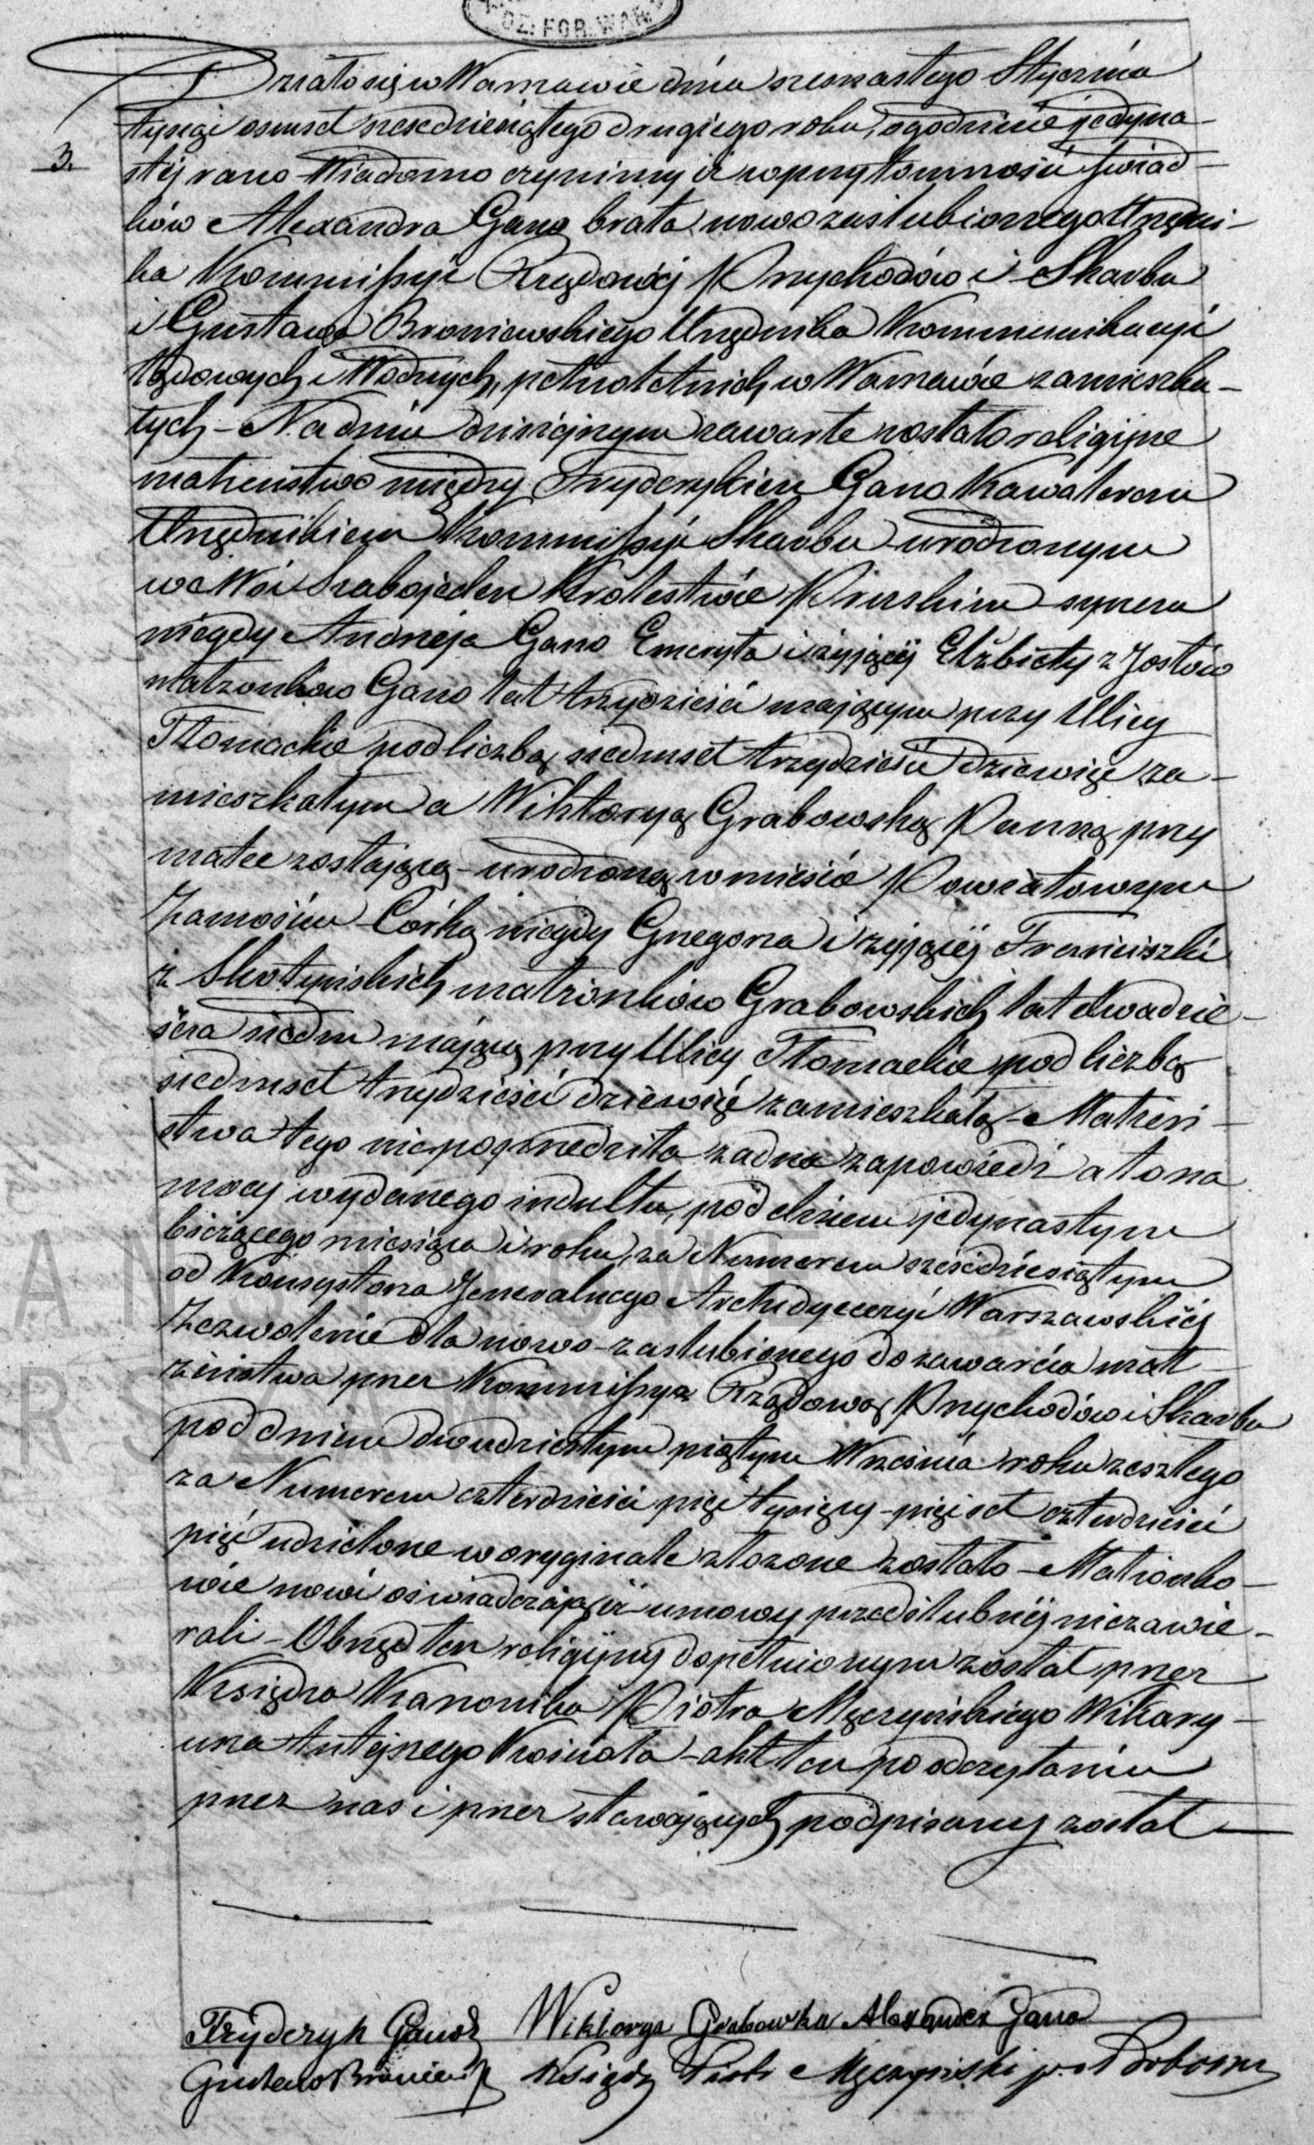 OZ. FOR. WAR.
3.
Działo się w Warszawie dnia szesnastego Stycznia
tysiąc osmset szesćdziesiątego drugiego roku, o godzinie jedyna-
stej rano Wiadomo czynimy iż w przytomności świad-
ków Alexandra Gano brata nowozaślubionego Urzędni-
ka Kommissyi Rządowéj Przychodów i Skarbu
i Gustawa Broniewskiego Urzędnika Kommunikacyi
lądowych i Wodnych, pełnoletnich w Warszawie zamieszka-
łych – Na dniu dzisiejszym zawarte zostało religijne
małżeństwo między Fryderykiem Gano Kawalerem
Urzędnikiem Kommissyi Skarbu urodzonym
we Wsi Szabojeden Królestwie Pruskim synem
niegdy Andrzeja Gano Emeryta i żyjącej Elżbiety z Jostów
małżonków Gano lat trzydzieści mającym przy Ulicy
Tłomackie pod liczbą siedmset trzydzieści dziewięć za-
mieszkałym a Wiktoryą Grabowską Panną przy
matce zostającą – urodzoną w mieście Powiatowym
Zamościu – Córką niegdy Grzegorza i żyjącéj Franciszki
z Skotyńskich małżonków Grabowskich lat dwadzie-
ścia siedm mającą przy Ulicy Tłomackie pod liczbą
siedmset trzydzieści dziewięć zamieszkałą – Małżeń-
stwa tego nie poprzedziła żadna zapowiedź a to na
mocy wydanego indultu, pod dniem jedynastym
bieżącego miesiąca i roku, za Numerem sześćdziesiątym
od Konsystorza Jeneralnego Archidyecezyi Warszawskiéj
Zezwolenie dla nowo-zaślubionego do zawarcia małż
żeństwa przez Kommissyą Rządową Przychodów i Skarbu
pod dniem dwudziestym piątym Września roku zeszłego
za Numerem czterdzieści pięć tysięcy pięćset czterdzieści
pięć udzielone w oryginale złożone zostało – Małżonko-
wie nowi oświadczają iż umowy przedślubnéj nie zawie-
rali – Obrzęd ten religijny dopełnionym został przez
Księdza Kanonika Piotra Męczyńskiego Wikary-
usza tutejszego Kościoła – akt ten po odczytaniu
przez nas i przez stawających podpisany został
Fryderyk Gano Wiktorya Grabowska Alexander Gano
Gustaw Broniewski Ksiądz Piotr Męczyński p. o. Proboszcza